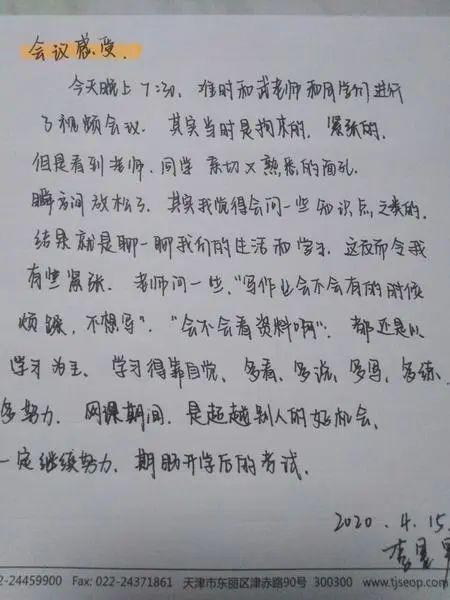 会议感受.
今天晚上7:30,准时和武老师和同学们进行
了视频会议.其实当时是拘束的,紧张的,
但是看到老师、同学 亲切又熟悉的面孔.
瞬间放松了.其实我觉得会问一些知识点之类的,
结果就是聊一聊我们的生活和学习.这反而令我
有些紧张.老师问一些,"写作业会不会有的时候
烦躁,不想写"."会不会看资料啊".都还是以
学习为主、学习得靠自觉、多看、多说、多写、多练、
多努力.网课期间,是超越别人的好机会.
一定继续努力.期盼开学后的考试.
2020.4.15.
李
2-24459900 Fax: 022-24371861 天津市东丽区津赤路90号 300300 www.tjseop.com/